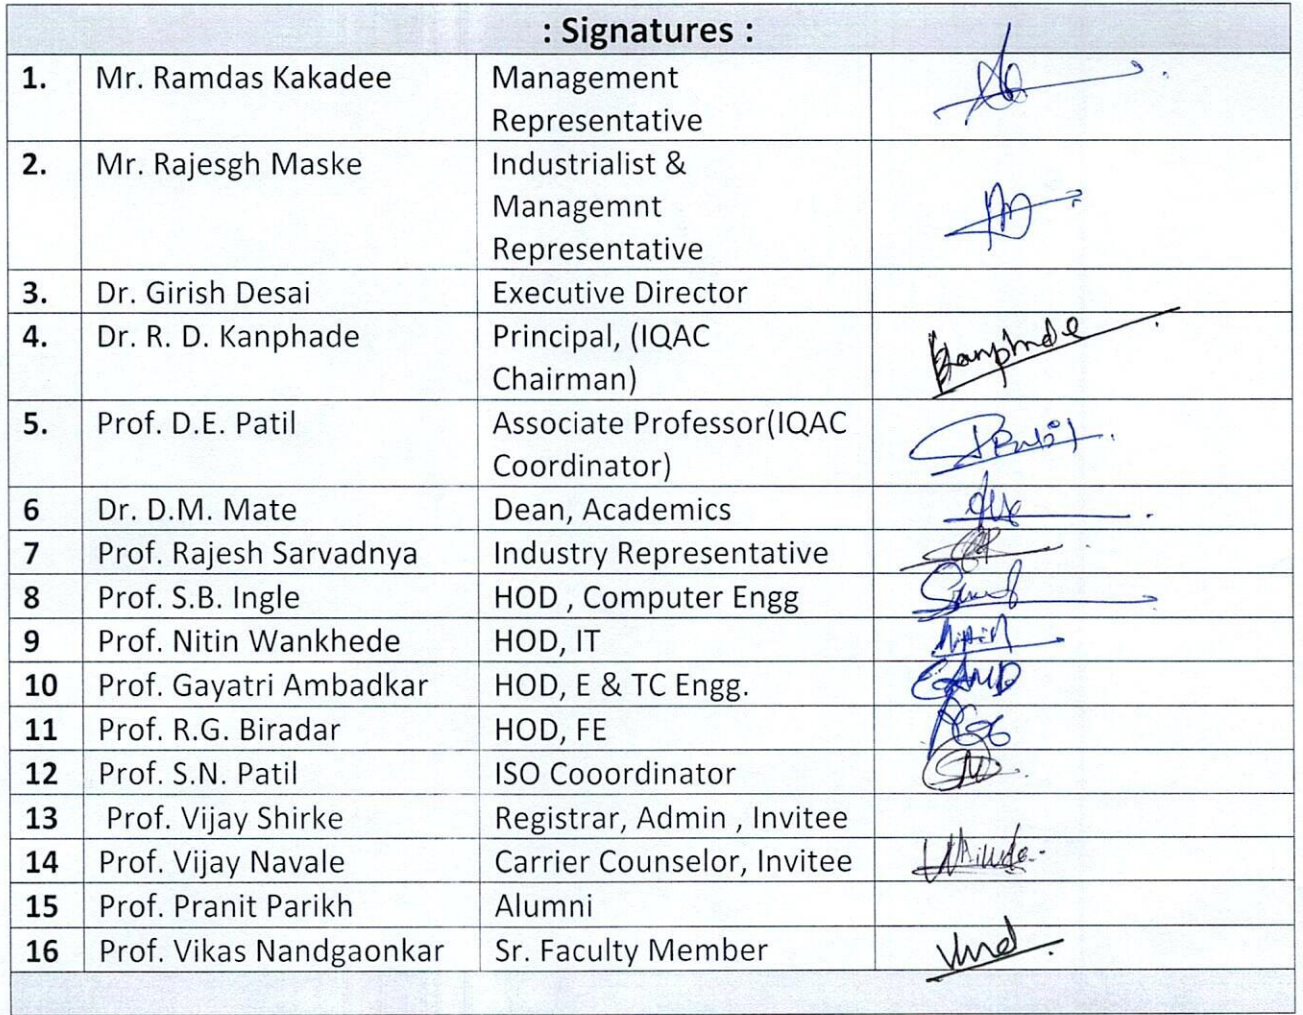 : Signatures :
1. Mr. Ramdas Kakadee Management
Representative
2. Mr. Rajesgh Maske Industrialist &
Managemnt
Representative
3. Dr. Girish Desai Executive Director
4. Dr. R. D. Kanphade Principal, (IQAC
Chairman)
Kanphade
5. Prof. D.E. Patil Associate Professor(IQAC
Coordinator)
6 Dr. D.M. Mate Dean, Academics
7 Prof. Rajesh Sarvadnya Industry Representative
8 Prof. S.B. Ingle HOD , Computer Engg
9 Prof. Nitin Wankhede HOD, IT Nitin
10 Prof. Gayatri Ambadkar HOD, E & TC Engg.
11 Prof. R.G. Biradar HOD, FE
12 Prof. S.N. Patil ISO Cooordinator
13 Prof. Vijay Shirke Registrar, Admin , Invitee
14 Prof. Vijay Navale Carrier Counselor, Invitee
15 Prof. Pranit Parikh Alumni
16 Prof. Vikas Nandgaonkar Sr. Faculty Member